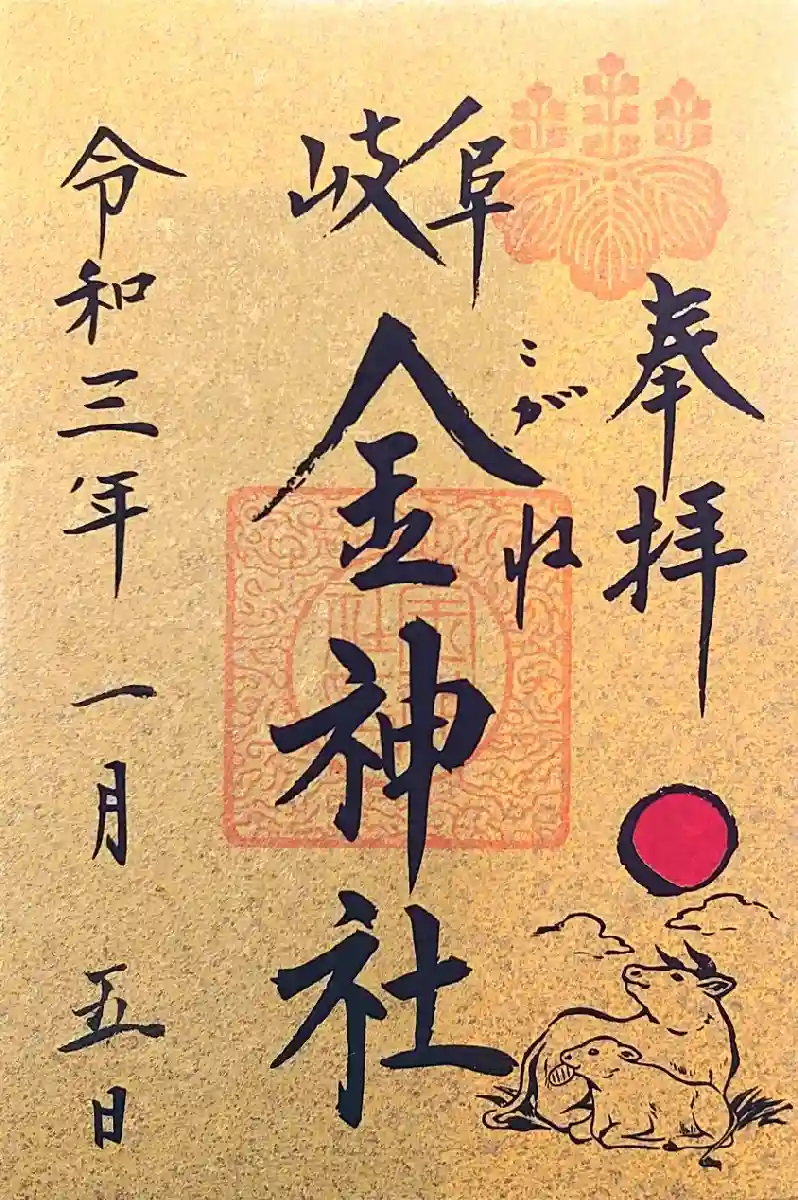 奉拝
岐阜
こがね
金神社
令和三年 一月 五日